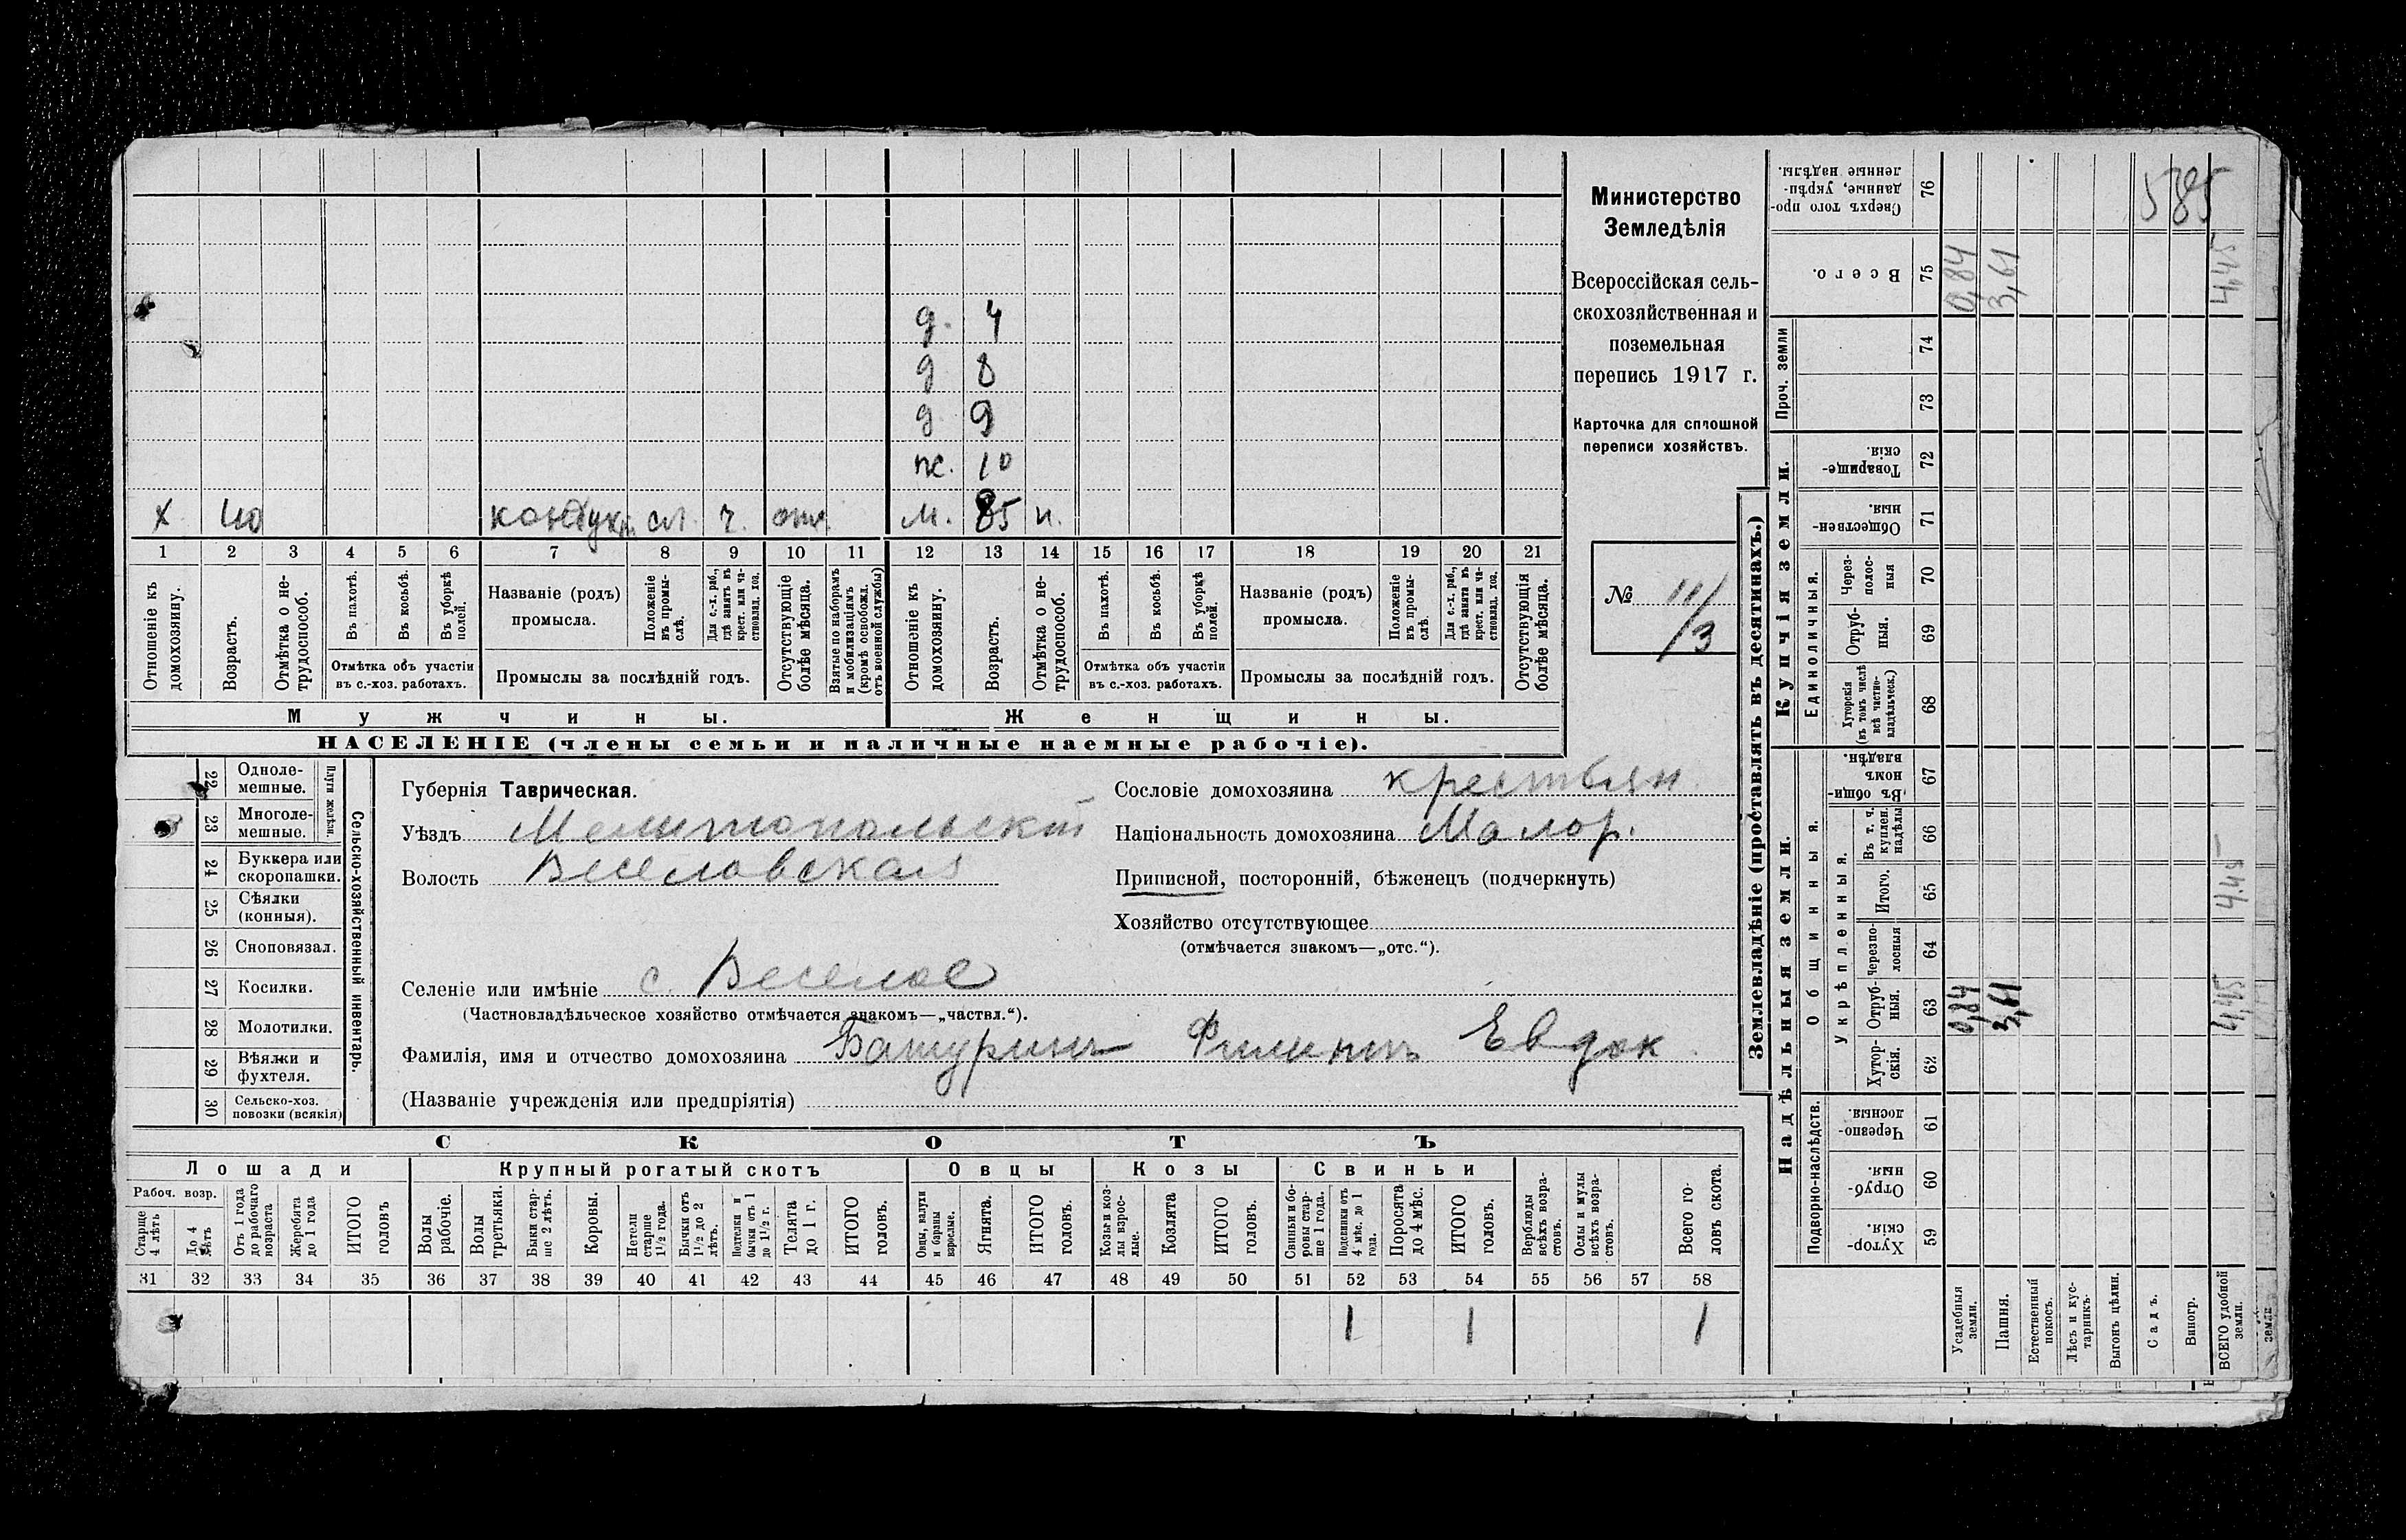 Министерство
Земледѣлія
Всероссійская сель-
скохозяйственная и
поземельная
перепись 1917 г.
Карточка для сплошной
переписи хозяйствъ.
№ 111/3
д. 4
д 8
д 9
ж. 10
х 40 сл. ч. отл. м. 85 н.
1 2 3 4 5 6 7 8 9 10 11 12 13 14 15 16 17 18 19 20 21
Отношеніе къ домохозяину.
Возрастъ.
Отмѣтка о не-трудоспособ.
Въ пахотѣ.
Въ косьбѣ.
Въ уборкѣ полей.
Отмѣтка объ участіи
въ с.-хоз. работахъ.
Названіе (родъ)
промысла.
Положеніе въ промы-слѣ.
Для с.-х. раб., гдѣ занятъ въ крест. или ча-стновлад. хоз.
Промыслы за послѣдній годъ.
Отсутствующіе болѣе мѣсяца.
Взятые по наборамъ и мобилизаціямъ (кромѣ освобожд. отъ военной службы)
Отношеніе къ домохозяину.
Возрастъ.
Отмѣтка о не-трудоспособ.
Въ пахотѣ.
Въ косьбѣ.
Въ уборкѣ полей.
Отмѣтка объ участіи
въ с.-хоз. работахъ.
Названіе (родъ)
промысла.
Положеніе въ промы-слѣ.
Для с.-х. раб., гдѣ занята въ крест. или ча-стновлад. хоз.
Промыслы за послѣдній годъ.
Отсутствующія болѣе мѣсяца.
Мужчины.
Женщины.
НАСЕЛЕНІЕ (члены семьи и наличные наемные рабочіе).
22 Одноле-мешные.
23 Многоле-мешные.
Плуги желѣзн.
24 Буккера или скоропашки.
25 Сѣялки (конныя).
26 Сноповязал.
27 Косилки.
28 Молотилки.
29 Вѣялки и фухтеля.
30 Сельско-хоз. повозки (всякія)
Сельско-хозяйственный инвентарь.
Губернія Таврическая.
Уѣздъ Мелитопольскій
Волость Веселовская
Селеніе или имѣніе с. Веселое
(Частновладѣльческое хозяйство отмѣчается знакомъ—„частвл.“).
Фамилія, имя и отчество домохозяина Батуринъ Филиппъ Евдок
(Названіе учрежденія или предпріятія)
Сословіе домохозяина крестьян.
Національность домохозяина Малор.
Приписной, посторонній, бѣженецъ (подчеркнуть)
Хозяйство отсутствующее
(отмѣчается знакомъ—„отс.“).
СКОТЪ
Лошади
Крупный рогатый скотъ
Овцы
Козы
Свиньи
Рабоч. возр.
Старше 4 лѣтъ
До 4 лѣтъ
Отъ 1 года до рабочаго возраста
Жеребята до 1 года
ИТОГО головъ
Волы рабочіе.
Волы третьяки.
Быки стар-ше 2 лѣтъ.
Коровы.
Нетели старше 1½ года.
Бычки отъ 1½ до 2 лѣтъ.
Подтелки и бычки отъ 1 до 1½ г.
Телята до 1 г.
ИТОГО головъ.
Овцы, валухи и бараны взрослые.
Ягнята.
ИТОГО головъ.
Козы и коз-лы взрос-лые.
Козлята
ИТОГО головъ.
Свиньи и бо-ровы стар-ше 1 года.
Подсвинки отъ 4 мѣс. до 1 года.
Поросята до 4 мѣс.
ИТОГО головъ.
Верблюды всѣхъ возра-стовъ.
Ослы и мулы всѣхъ возра-стовъ.
Всего го-ловъ скота.
31 32 33 34 35 36 37 38 39 40 41 42 43 44 45 46 47 48 49 50 51 52 53 54 55 56 57 58
1 1 1
Землевладѣніе (проставлять въ десятинахъ.)
Надѣльныя земли.
Купчія земли.
Проч. земли
Подворно-наслѣдств.
Общинныя.
Укрѣпленныя.
Единоличныя.
Сверхъ того про-данные, укрѣп-ленные надѣлы. 76
Всего. 75
74
73
Товарище-скія. 72
Обществен-ныя. 71
Через-полос-ныя 70
Отруб-ныя. 69
Хуторскія (въ томъ числѣ всѣ частно-владѣльческ.) 68
Въ общи-номъ владѣн. 67
Въ т. ч. куплен. надѣлы 66
Итого. 65
Черезпо-лосныя 64
Отруб-ныя. 63
Хутор-скія. 62
Черезпо-лосныя. 61
Отруб-ныя. 60
Хутор-скія. 59
Усадебныя земли.
Пашня.
Естественный покосъ.
Лѣсъ и кус-тарникъ.
Выгонъ цѣлин.
Садъ.
Виногр.
ВСЕГО удобной земли.
585
0,84
3,61
4,45
4.45
0,84
3,61
4,45